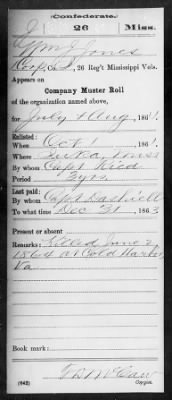 Confederate.
26 Miss.
Wm J Jones
Co. , 26 Reg't Mississippi Vols.
Appears on
Company Muster Roll
of the organization named above,
for July & Aug, 1864.
Enlisted:
When Oct 1, 1861.
Where Iuka, Miss
By whom Capt Reid
Period 3 yrs
Last paid:
By whom Capt
To what time Dec 31, 1863
Present or absent
Remarks: Killed June 2
1864 at Cold Harbor
Va
Book mark:
(642) Copyist.